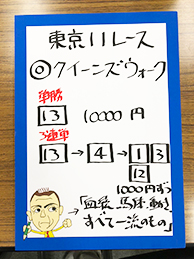 東京11レース
◎クイーンズウォーク
単勝
13 10000円
3連単
13→4→1 3
12
1000円ずつ
→「血統、馬体、動き
すべて一流のもの」